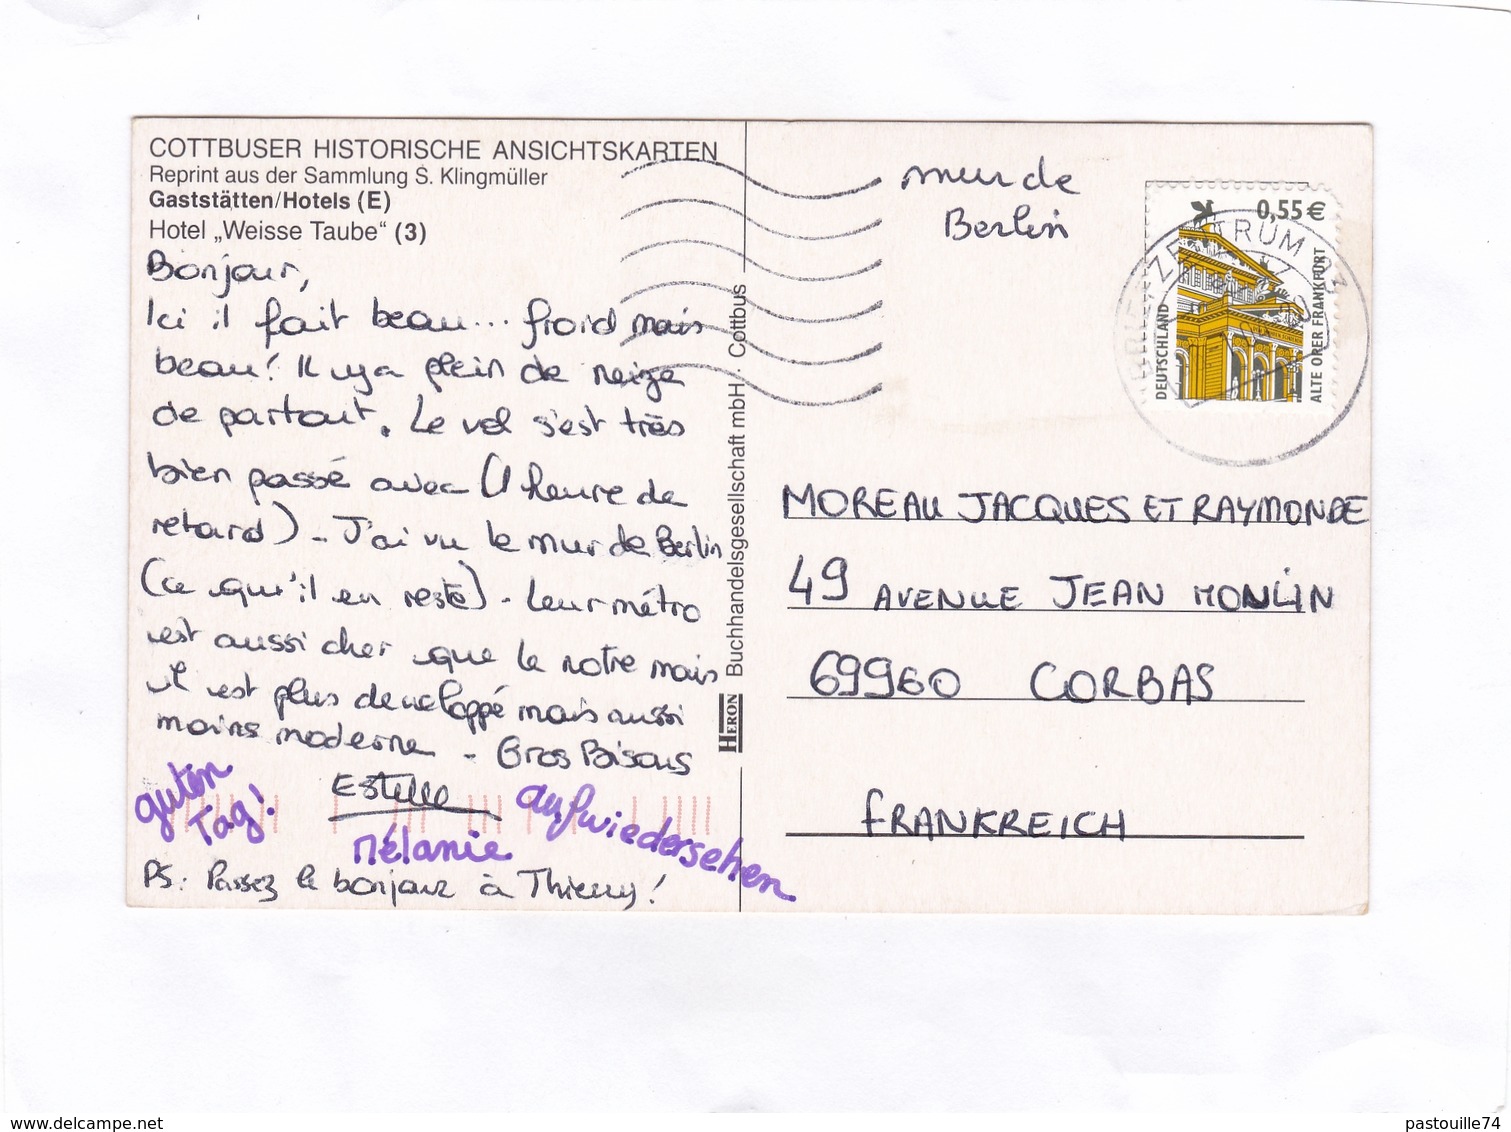 COTTBUSER HISTORISCHE ANSICHTSKARTEN
Reprint aus der Sammlung S. Klingmüller
Gaststätten/Hotels (E)
Hotel „Weisse Taube“ (3)
Bonjour,
Ici il fait beau... froid mais
beau! Il y a plein de neige
de partout. Le vol s'est très
bien passé avec (1 heure de
retard) - J'ai vu le mur de Berlin
(ce qu'il en reste) - Leur métro
est aussi cher que le notre mais
il est plus developpé mais aussi
moins moderne - Gros Bisous
guten
Tag!
Estelle
Mélanie
aufwiedersehen
PS: Passez le bonjour à Thierry!
Buchhandelsgesellschaft mbH · Cottbus
HERON
mur de
Berlin
0,55€
DEUTSCHLAND
ALTE OPER FRANKFURT
ZENTRUM
MOREAU JACQUES ET RAYMONDE
49 AVENUE JEAN MOULIN
69960 CORBAS
FRANKREICH
www.delcampe.net
pastouille74